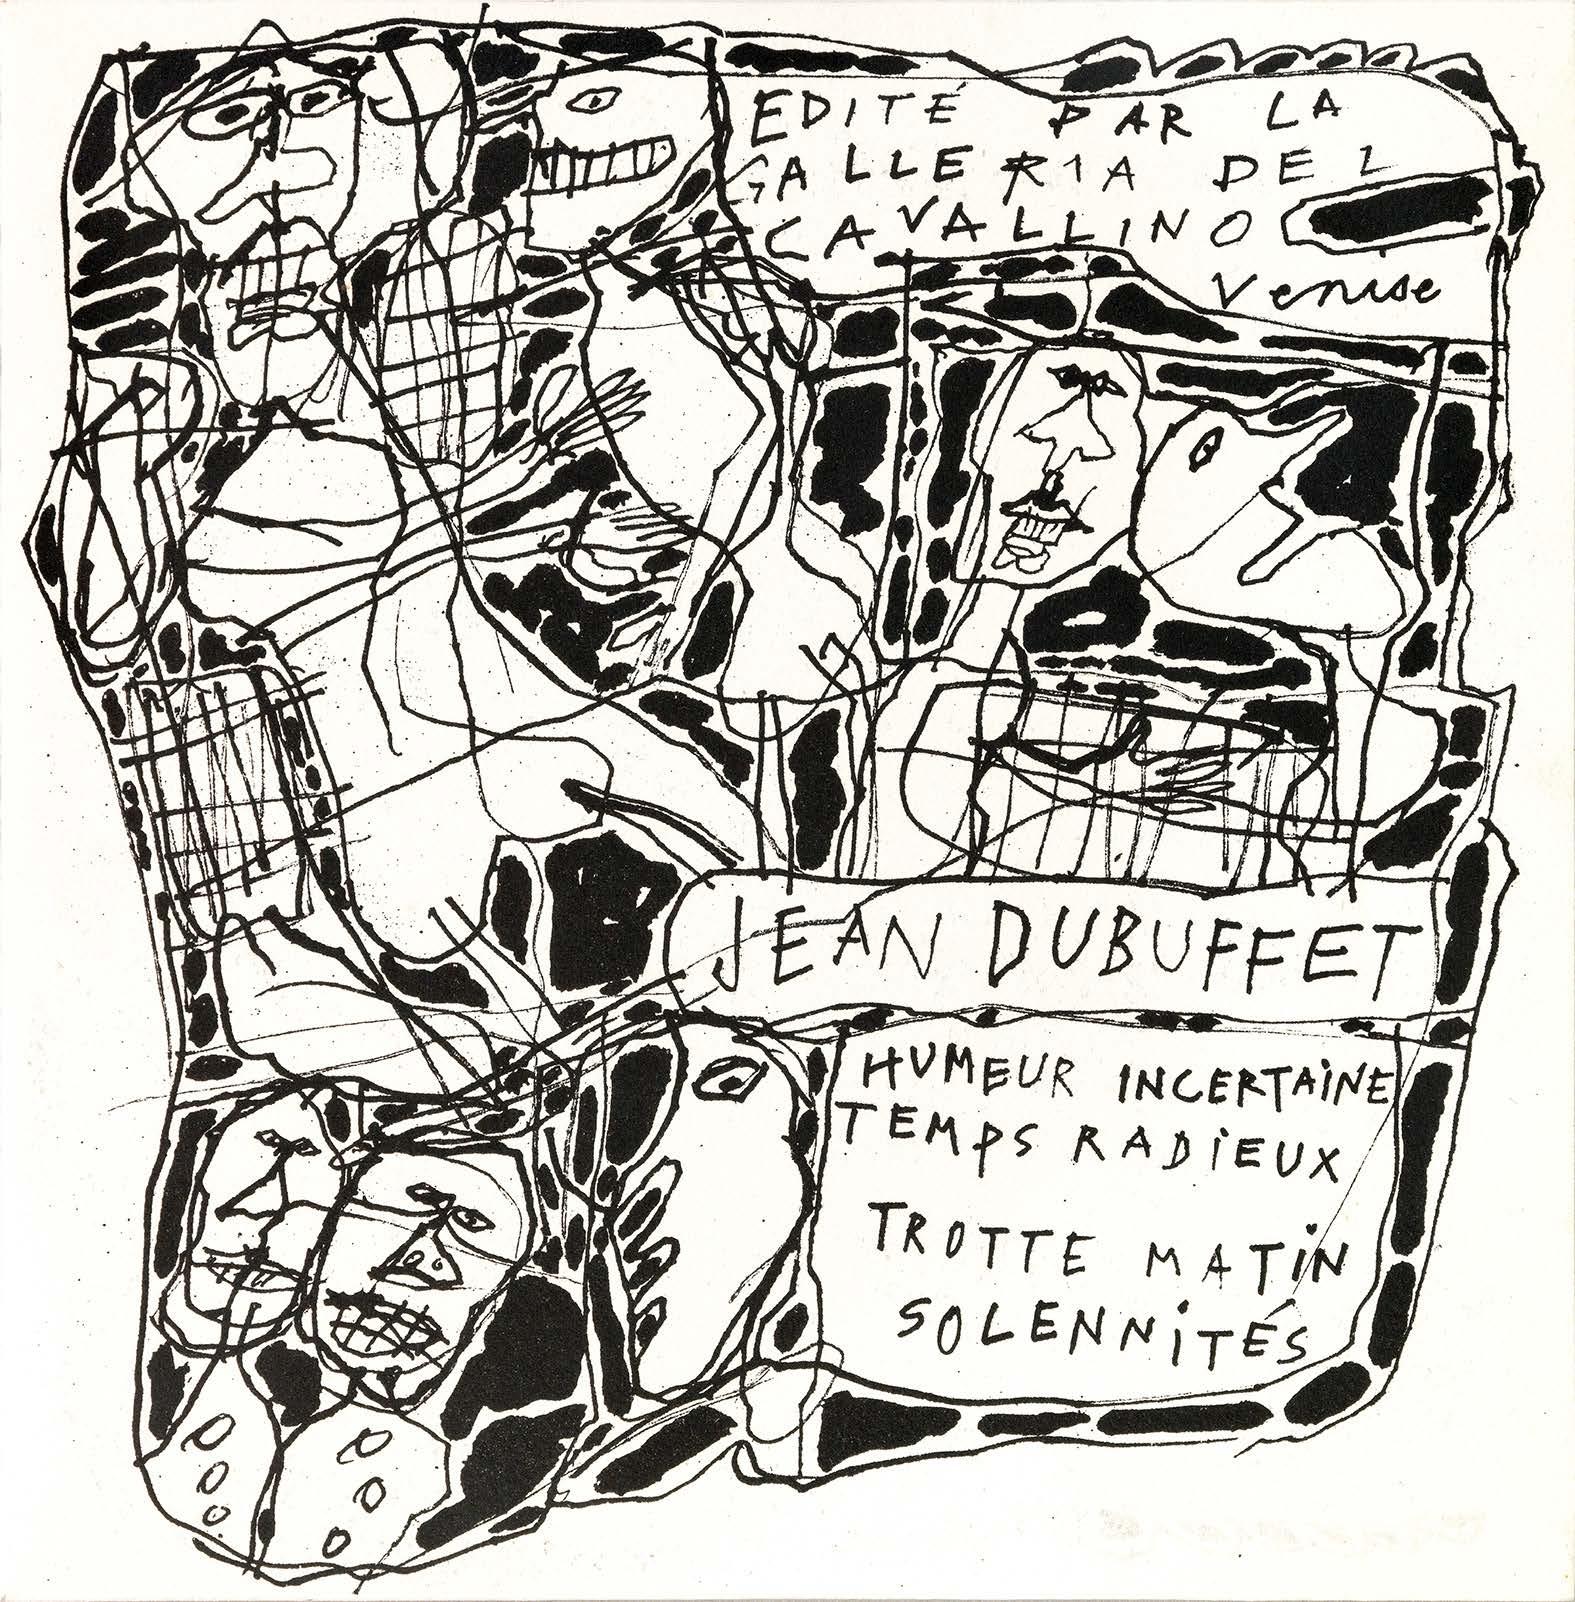 EDITÉ PAR LA
GALLERIA DEL
CAVALLINO
Venise
JEAN DUBUFFET
HUMEUR INCERTAINE
TEMPS RADIEUX
TROTTE MATIN
SOLENNITÉS